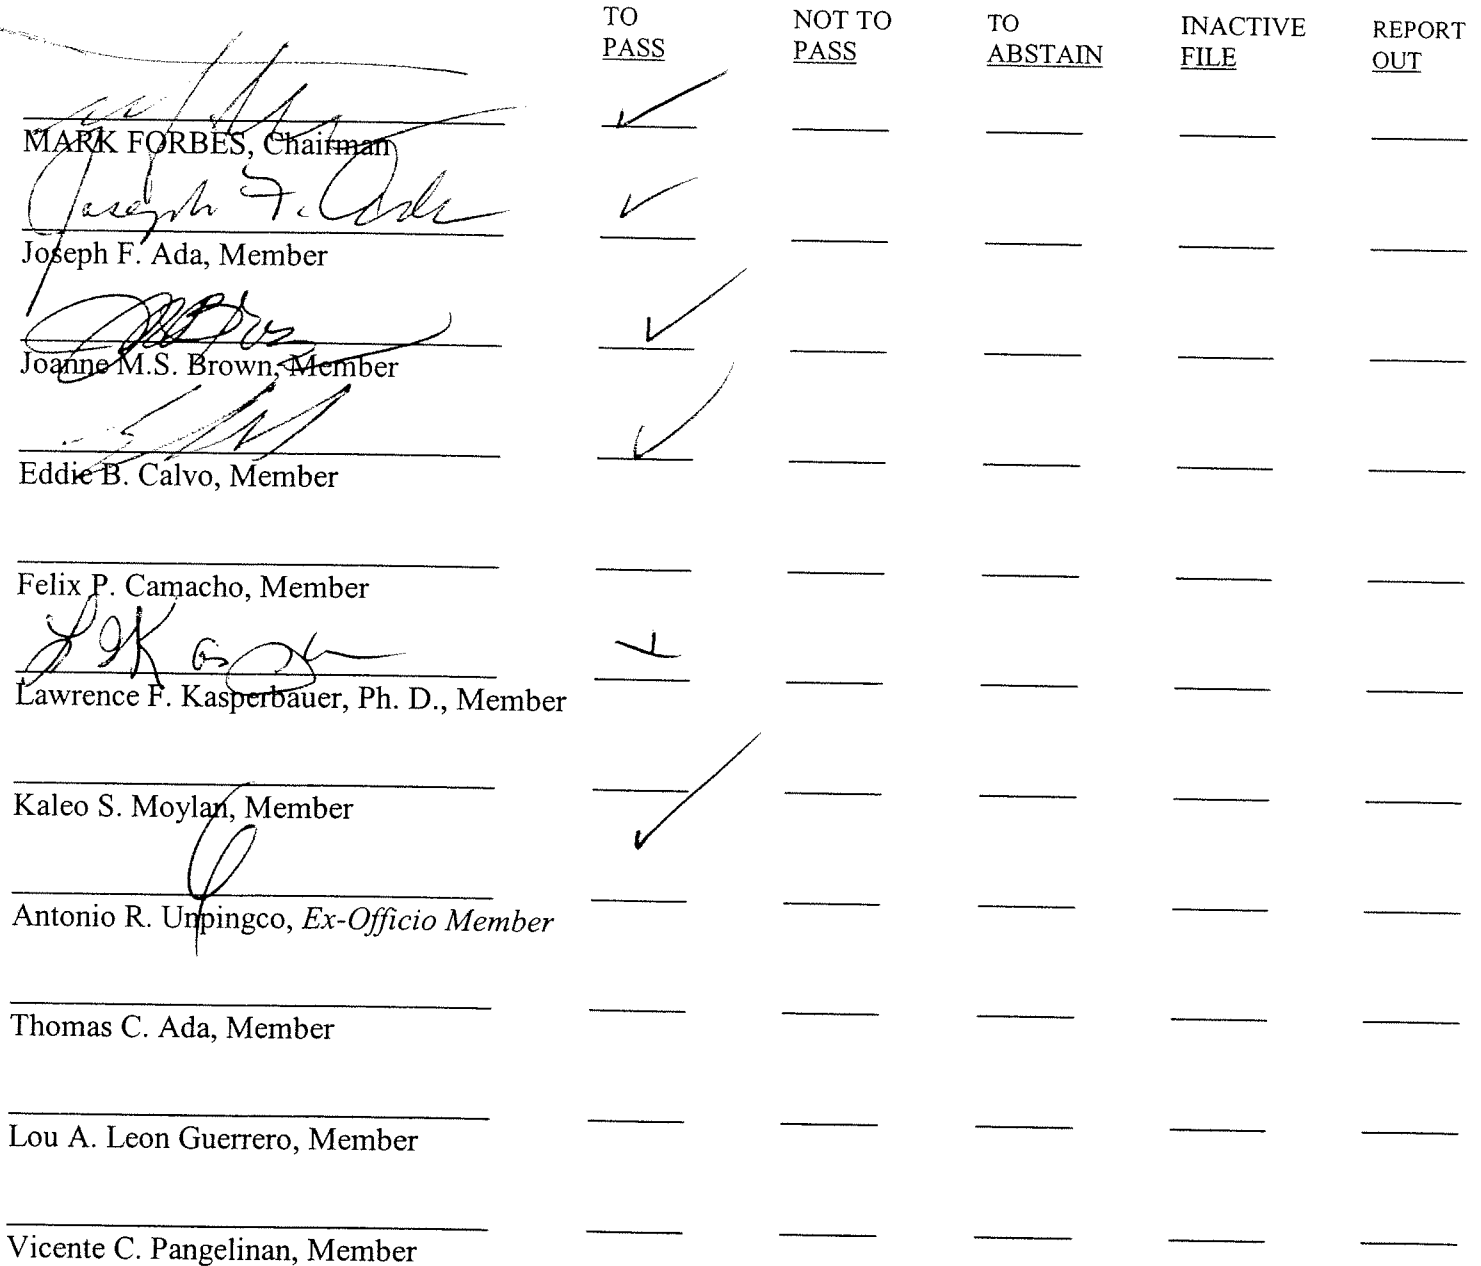 TO NOT TO TO INACTIVE REPORT
PASS PASS ABSTAIN FILE OUT
MARK FORBES, Chairman
Joseph F. Ada
Joseph F. Ada, Member
Joanne M.S. Brown, Member
Eddie B. Calvo, Member
Felix P. Camacho, Member
Lawrence F. Kasperbauer, Ph. D., Member
Kaleo S. Moylan, Member
Antonio R. Unpingco, Ex-Officio Member
Thomas C. Ada, Member
Lou A. Leon Guerrero, Member
Vicente C. Pangelinan, Member